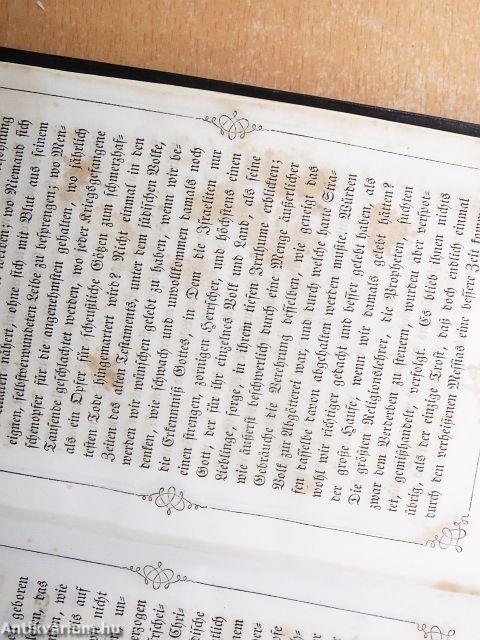 nähert, ohne sich mit Blut aus seinem
eignen, selbstverwundeten Leibe zu besprengen; wo Men-
schenopfer für die angenehmsten gehalten, wo jährlich
Tausende geschlachtet werden, wo jeder Kriegsgefangene
als ein Opfer für scheußliche Götzen zum schmerzhaf-
testen Tode hingemartert wird? Nicht einmal in den
Zeiten des alten Testaments, unter dem jüdischen Volke,
werden wir wünschen gelebt zu haben, wenn wir be-
denken, wie schwach und unvollkommen damals noch
die Erkenntniß Gottes, in Dem die Israeliten nur
einen strengen, zornigen Herrscher, und höchstens einen
Gott, der für ihr einzelnes Volk und Land, als seine
Lieblinge, sorge, in ihrem tiefen Irrthume erblickten;
wie äußerst beschwerlich durch eine Menge äußerlicher
Gebräuche die Verehrung desselben, wie geneigt das
Volk zur Abgötterei war, und durch welche harte Stra-
fen dasselbe davon abgehalten werden mußte. Würden
wohl wir richtiger gedacht und besser gelebt haben, als
der große Haufe, wenn wir damals gelebt hätten?
Die größten Religionslehrer, die Propheten, suchten
zwar dem Verderben zu steuern, wurden aber verspot-
tet, gemißhandelt, verfolgt. Es blieb ihnen nichts
übrig, als der einzige Trost, daß doch endlich einmal
durch den verheißenen Messias eine bessere Zeit
geboren
das
wie
auf
nicht
un-
Antikvarium.hu